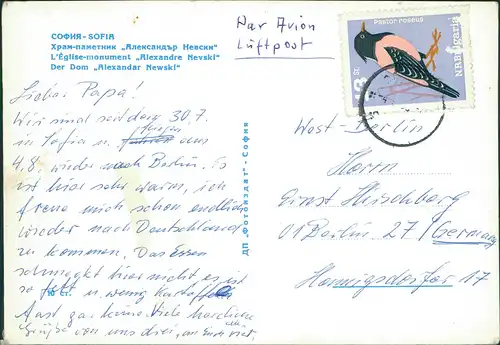 СОФИЯ - SOFIA
Храм-паметник „Александър Невски“
L'Église-monument „Alexandre Nevski“
Der Dom „Alexandar Newski“
Par Avion
Luftpost
Pastor roseus
NRBulgaria
Lieber Papa!
Wir sind seit dem 30.7.
in Sofia u. fliegen am
4.8. wieder nach Berlin. Es
ist hier sehr warm, ich
freue mich schon endlich
wieder nach Deutschland
zu kommen. Das Essen
schmeckt hier nicht es ist
so fett u. wenig Kartoffeln
fast gar keine. Viele herzliche
Grüße von uns drei,
10 ст.
ДП „Фотоиздат“ - София
West-Berlin
Herrn
Ernst Hirschberg
01 Berlin 27 / Germany
17